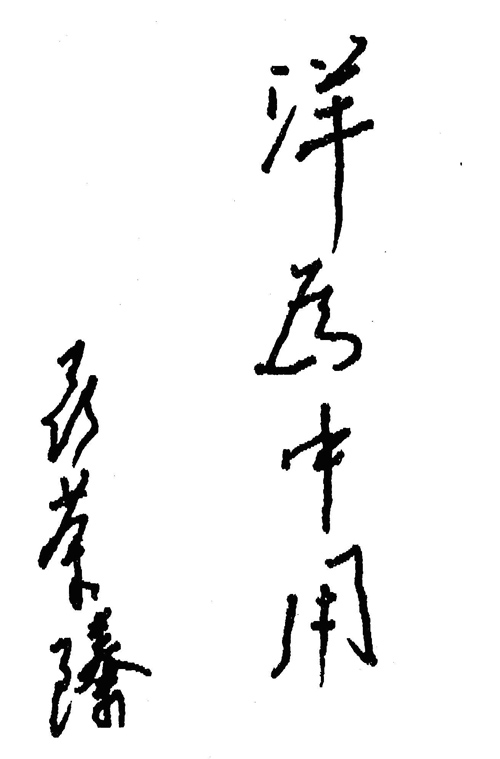 洋為中用
聂荣臻